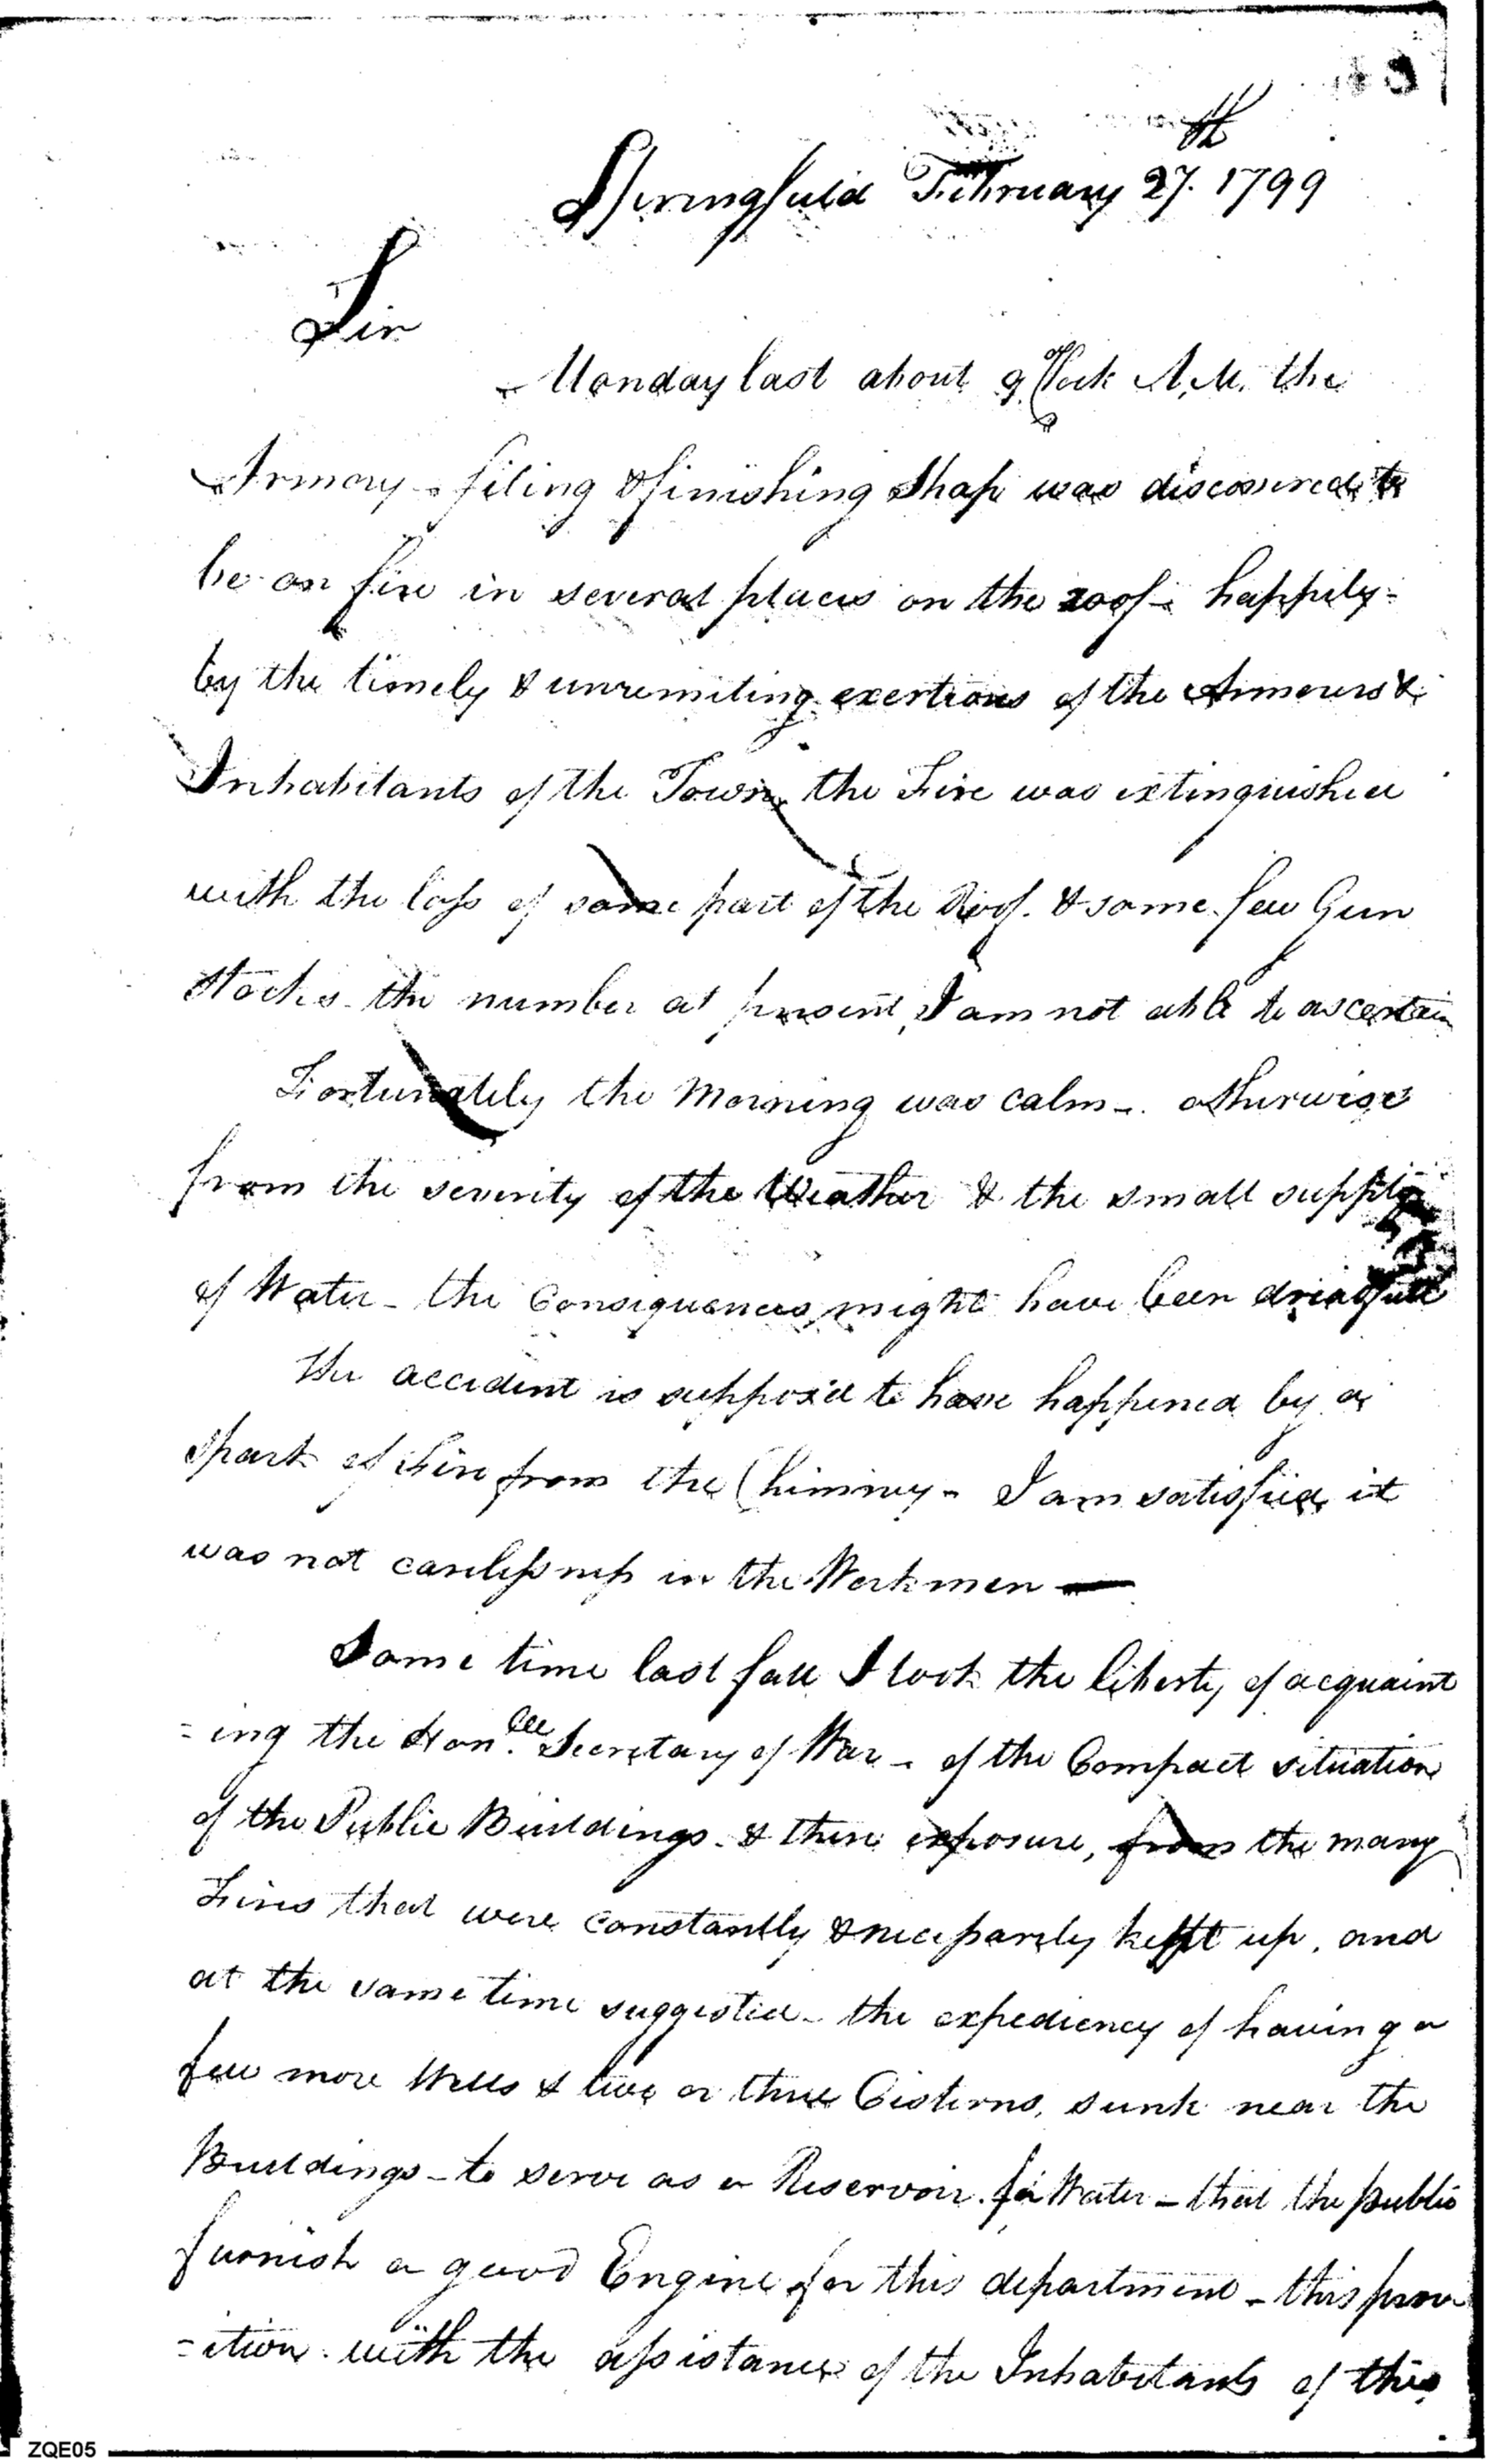 Springfield February 27th. 1799
Sir
Monday last about 9 oClock A.M. the
Armory - filing & finishing Shop was discovered to
be on fire in several places on the roof - happily -
by the timely & unremiting exertions of the Armourers &
Inhabitants of the Town, the Fire was extinguished
with the loss of some part of the Roof. & some few Gun
Stocks - the number at present, I am not able to ascertain
Fortunately the Morning was calm - otherwise
from the severity of the Weather & the small supply
of Water - the Consequences might have been dreadfull
The accident is suppos'd to have happened by a
spark of Fire from the Chimney - I am satisfied it
was not carelessness in the Workmen —
Some time last fall I took the liberty of acquaint
=ing the Hon.ble Secretary of War - of the Compact situation
of the Public Buildings - & there exposure, from the many
Fires that were constantly & necessarely kept up, and
at the same time suggested - the expediency of having a
few more Wells & two or three Cisterns, sunk near the
Buildings - to serve as a Reservoir for Water - that the public
furnish a good Engine for this department - this prov
=ition with the assistance of the Inhabitants of this
ZQE05